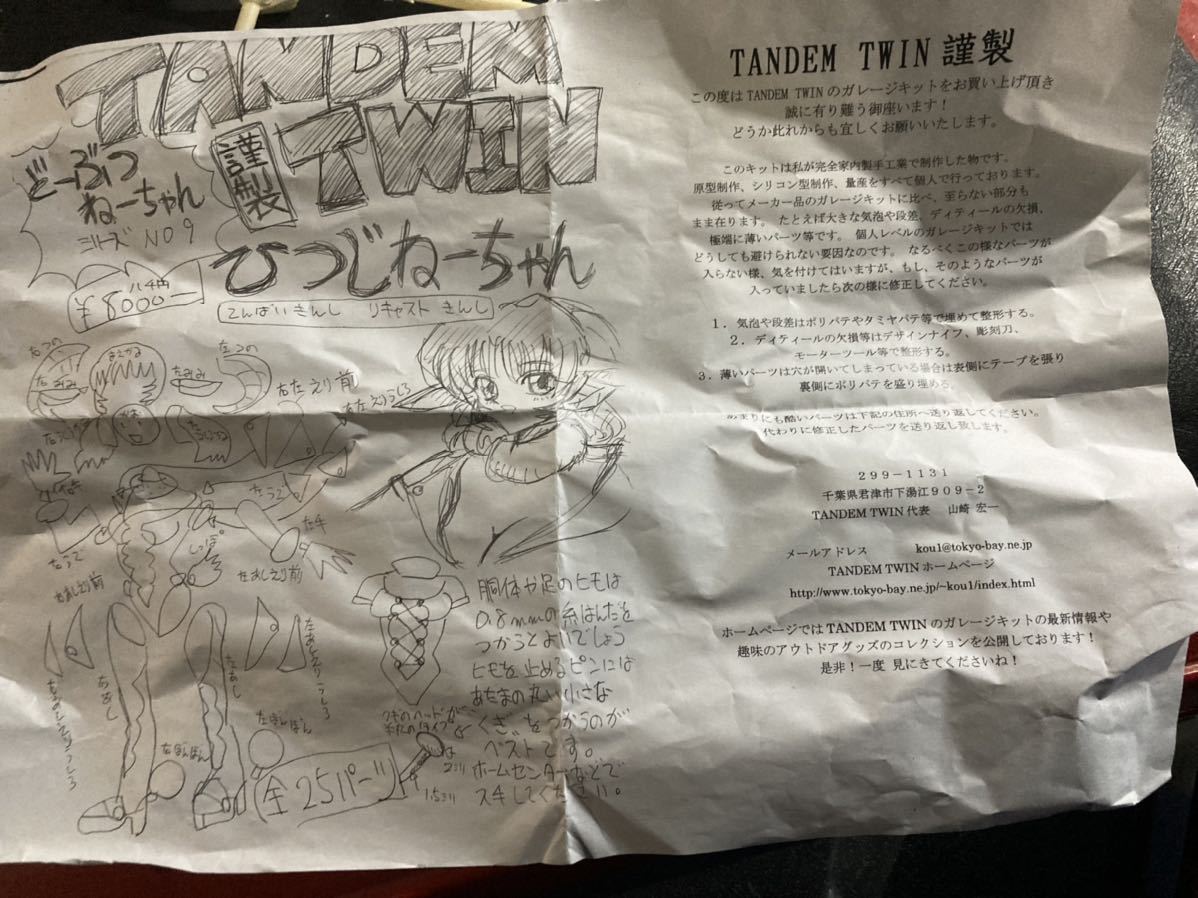 TANDEM
TWIN
謹製
どーぶつ
ねーちゃん
シリーズ NO 9
ひつじねーちゃん
ハチ円
¥8000-
てんばいきんし リキャスト きんし
右つの
左つの
右みみ
左みみ
まえがみ
かお
右えり前
左えり前
右えりうしろ
左うで
右うで
左手
しっぽ
右あしえり前
左あしえり前
右あしえりうしろ
左あしえりうしろ
右あし
左あし
左ぽんぽん
右ぽんぽん
全25パーツ
胴体や足のヒモは
0.8mmの糸はんだを
つかうとよいでしょう
ヒモを止めるピンには
あたまの丸い小さな
くぎをつかうのが
ベストです。
ホームセンターなどで
クギのヘッドが
半丸のタイプ
TANDEM TWIN 謹製
この度は TANDEM TWIN のガレージキットをお買い上げ頂き
誠に有り難う御座います！
どうか此れからも宜しくお願いいたします。
このキットは私が完全家内製手工業で制作した物です。
原型制作、シリコン型制作、量産をすべて個人で行っております。
従ってメーカー品のガレージキットに比べ、至らない部分も
まま在ります。 たとえば大きな気泡や段差、ディティールの欠損、
極端に薄いパーツ等です。 個人レベルのガレージキットでは
どうしても避けられない要因なのです。 なるべくこの様なパーツが
入らない様、気を付けてはいますが、もし、そのようなパーツが
入っていましたら次の様に修正してください。
１．気泡や段差はポリパテやタミヤパテ等で埋めて整形する。
２．ディティールの欠損等はデザインナイフ、彫刻刀、
モーターツール等で整形する。
３．薄いパーツは穴が開いてしまっている場合は表側にテープを張り
裏側にポリパテを盛り埋める。
あまりにも酷いパーツは下記の住所へ送り返してください。
代わりに修正したパーツを送り返し致します。
２９９－１１３１
千葉県君津市下湯江９０９－２
TANDEM TWIN 代表 山崎 宏一
メールアドレス kou1@tokyo-bay.ne.jp
TANDEM TWIN ホームページ
http://www.tokyo-bay.ne.jp/~kou1/index.html
ホームページでは TANDEM TWIN のガレージキットの最新情報や
趣味のアウトドアグッズのコレクションを公開しております！
是非！一度 見にきてくださいね！